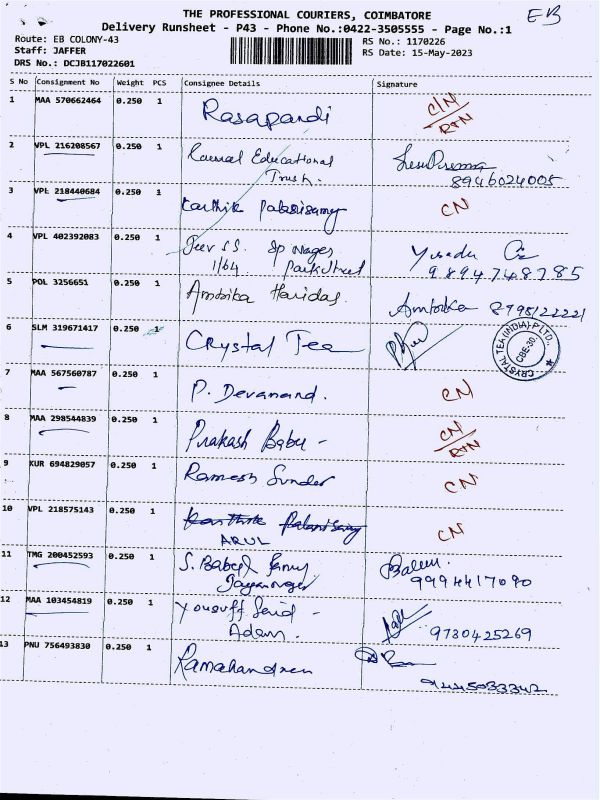 THE PROFESSIONAL COURIERS, COIMBATORE
EB
Delivery Runsheet - P43 - Phone No.:0422-3505555 - Page No.:1
Route: EB COLONY-43
RS No.: 1170226
Staff: JAFFER
RS Date: 15-May-2023
DRS No.: DCJB117022601
S No Consignment No Weight PCS Consignee Details Signature
1 MAA 570662464 0.250 1 Rasapandi C/N
RTN
2 VPL 216208567 0.250 1 Educational
Trust. 8946024005
3 VPL 218440684 0.250 1 Karthik Palanisamy CN
4 VPL 402392083 0.250 1 Nagar
1/64 Park Street 9894748785
5 POL 3256651 0.250 1 Ambika Haridas. Ambika 8798122221
6 SLM 319671417 0.250 1 Crystal Tea
CRYSTAL TEA (INDIA) P LTD.,
CBE-30.
7 MAA 567560787 0.250 1 P. Devanand. CN
8 MAA 298544839 0.250 1 Prakash Babu - CN
RTN
9 KUR 694829057 0.250 1 Ramesh Sunder CN
10 VPL 218575143 0.250 1 Karthik Palanisamy CN
ARUL
11 TMG 200452593 0.250 1 S.
9994417090
12 MAA 103454819 0.250 1 Yousuff -
Adam. 9730425269
13 PNU 756493830 0.250 1 Ramahandren
9445033342